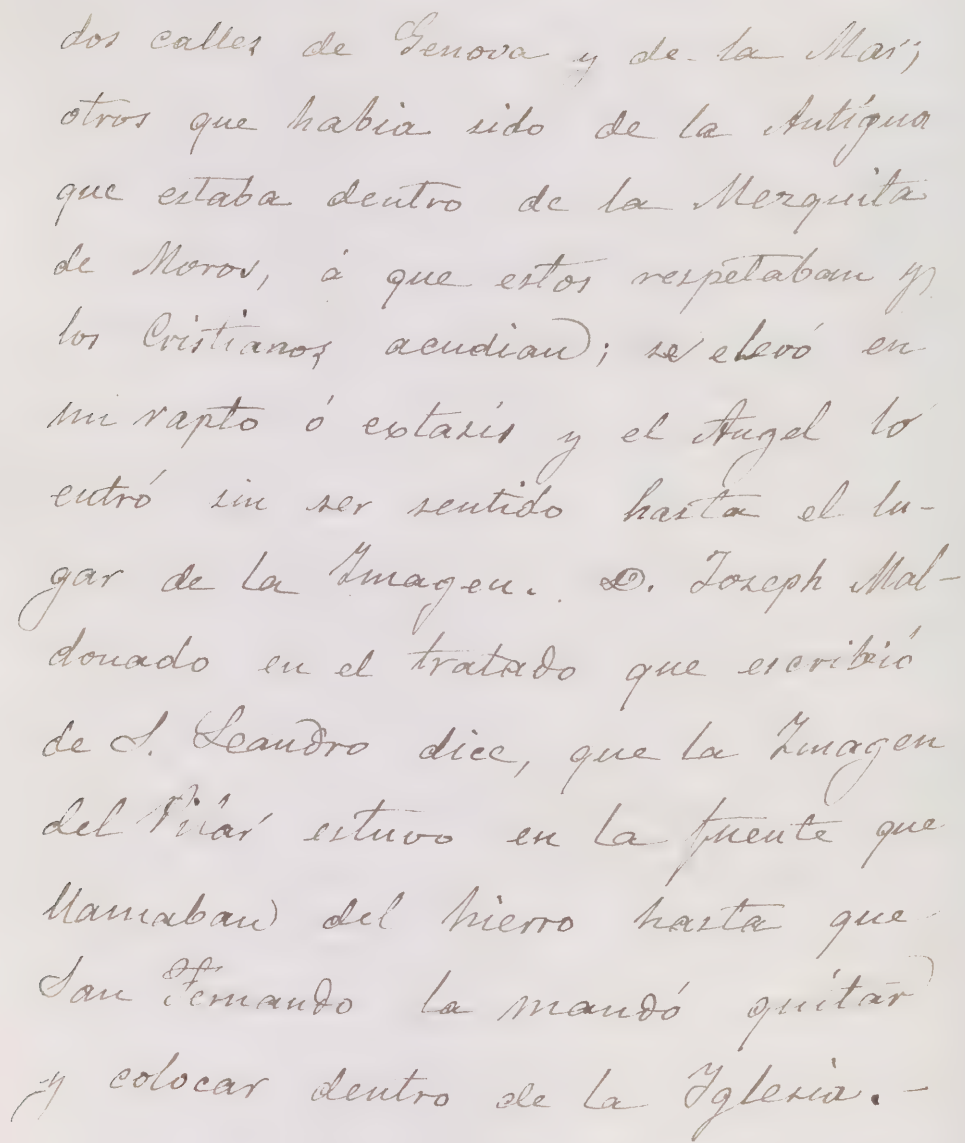 dos calles de Genova y de la Mar;
otros que habia sido de la Antígua
que estaba dentro de la Mezquita
de Moros, á que estos respetaban y
los Cristianos acudian; se elevó en
un rapto ó extasis y el Angel lo
entró sin ser sentido hasta el lu-
gar de la Imagen. D. Joseph Mal-
donado en el tratado que escribió
de S. Leandro dice, que la Imagen
del Pilar estuvo en la fuente que
llamaban del hierro hasta que
San Fernando la mandó quitar
y colocar dentro de la Iglesia. -